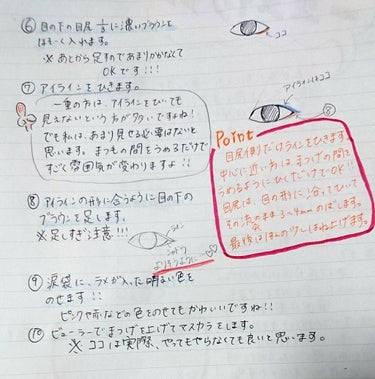 ⑥ 目の下の目尻 1/3 に濃いブラウンを
ほそーく入れます。
※ あとから足すのであまりかかなくて
OKです!!!
ココ
⑦ アイラインをひきます。
一重の方は、アイラインをひいても
見えないという方が多いですよね!
でも私は、あまり見せる必要はないと
思います。まつもの間をうめるだけで
すごく雰囲気が変わりますよ!!
アイラインはココ
⑧
Point
目尻側だけラインをひきます。
中心に近い方はまつげの間を
うめるようにひくだけでOK!!
目尻は、目の形に沿ってひいて
その流れのまま3〜4mmのばします。
最後はほんの少しはね上げます。
⑧ アイラインの形に合うように目の下の
ブラウンを足します。
※足しすぎ注意!!!
ライン
シャドウ
よりそうように…
⑨ 涙袋に、ラメが入った明るい色を
のせます!!
ピンクや赤などの色をのせてもかわいいですね!!
⑩ ビューラーでまつげを上げてマスカラをします。
※ ココは実際、やってもやらなくても良いと思います。